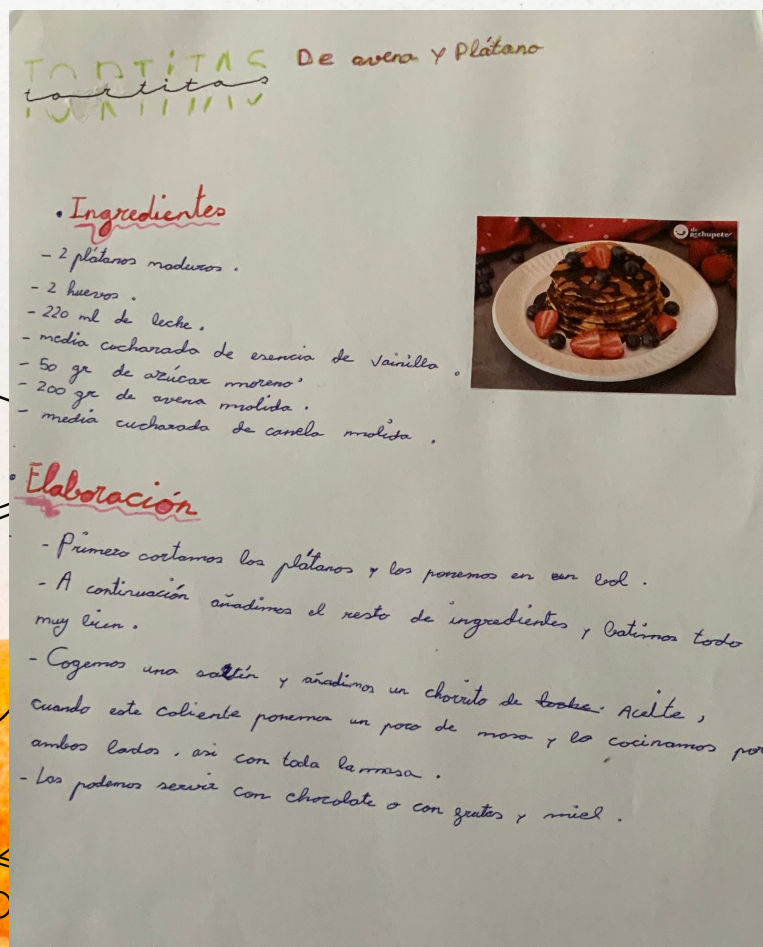 TORTITAS
tortitas
De avena y Plátano
• Ingredientes
- 2 plátanos maduros.
- 2 huevos.
- 220 ml de leche.
- media cucharada de esencia de vainilla.
- 50 gr de azúcar moreno
- 200 gr de avena molida.
- media cucharada de canela molida.
de Rechupete
• Elaboración
- Primero cortamos los plátanos y los ponemos en un bol.
- A continuación añadimos el resto de ingredientes, batimos todo
muy bien.
- Cogemos una sartén y añadimos un chorrito de leche. Aceite,
cuando este caliente ponemos un poco de masa y la cocinamos por
ambos lados, asi con toda la masa.
- Las podemos servir con chocolate o con frutas y miel.